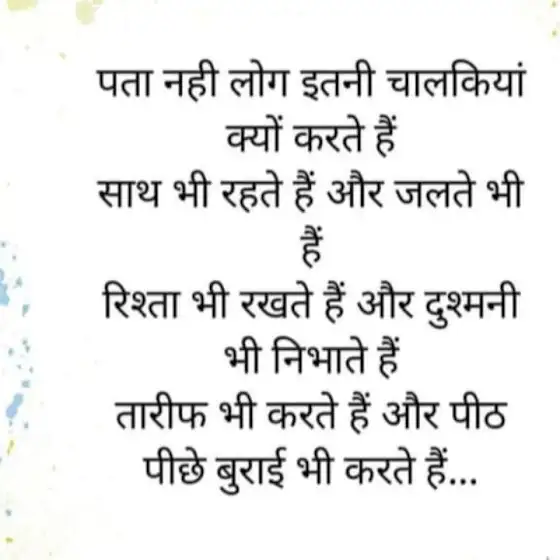 पता नही लोग इतनी चालकियां
क्यों करते हैं
साथ भी रहते हैं और जलते भी
हैं
रिश्ता भी रखते हैं और दुश्मनी
भी निभाते हैं
तारीफ भी करते हैं और पीठ
पीछे बुराई भी करते हैं...